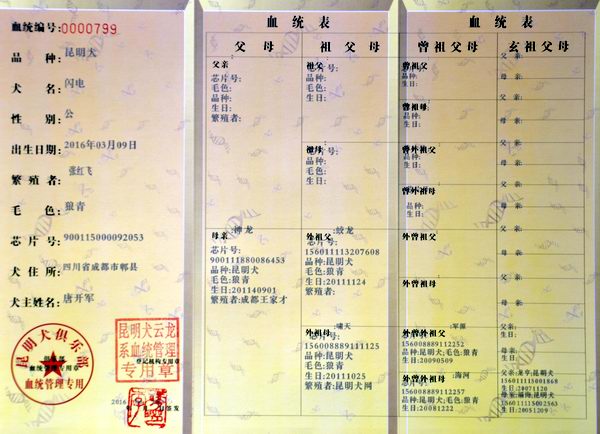 血统编号:0000799
品种:昆明犬
犬名:闪电
性别:公
出生日期:2016年03月09日
繁殖者:张红飞
毛色:狼青
芯片号:900115000092053
犬住所:四川省成都市郫县
犬主姓名:唐开军
昆明犬俱乐部
血统管理专用
昆明犬云龙
系血统管理
登记机构专用章
专用章
2016
签发
血统表
父母
祖父母
父亲
芯片号:
毛色:
品种:
生日:
繁殖者:
祖父:
芯片号:
品种:
毛色:
生日:
祖母:
芯片号:
品种:
毛色:
生日:
母亲:神龙
芯片号:
900111880086453
品种:昆明犬
毛色:狼青
生日:201140901
繁殖者:成都王家才
外祖父:蛟龙
芯片号:
156011113207608
品种:昆明犬
毛色:狼青
生日:20111124
繁殖者:
外祖母:啸天
芯片号:
156008889111125
品种:昆明犬
毛色:狼青
生日:20111025
繁殖者:昆明犬网
血统表
曾祖父母
玄祖父母
曾祖父
芯片号:
品种:
生日:
曾祖母:
芯片号:
品种:
生日:
曾外祖父:
芯片号:
品种:
生日:
曾外祖母
品种:
生日:
外曾祖父
外曾祖母
曾外祖父:军源
156008889112252
品种:昆明犬;毛色:狼青
生日:20090509
曾外曾祖母:海河
芯片号:
156008889112257
品种:昆明犬;毛色:狼青
生日:20081222
父亲:
母亲:
父亲:
母亲:
父亲:
母亲:
父亲:
母亲:
父亲:
母亲:
父亲:
母亲:
父亲:
母亲:
昆明犬
156011115001868
生日:20071120
昆明犬
156011115002563
生日:20051209